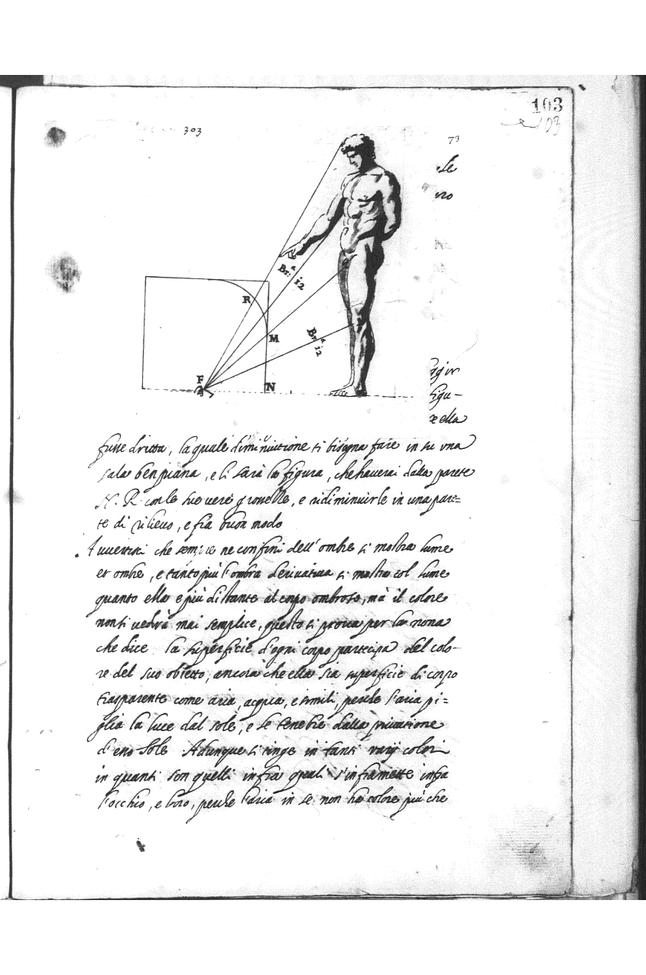 103
103
303
73
le
no
Br.ª i2
R
Br.ª i2
M
F
N
figu-
ella
fusse dritta, la quale diminuitione ti bisogna fare in su una
sala ben piana, e li sarà la figura, che haverai dalla parete
N. R. con le sue vere grosselle, e ridiminuirle in una pare=
te di rilievo, e fia buon modo
Avvertisci che sempre ne confini dell'ombre si mostra lume
et ombre, e tanto più l'ombra derivativa si mostra col lume
quanto ella e più distante al corpo ombroso, mà il colore
non si vedrà mai semplice, questo si prova per la nona
che dice la superficie d'ogni corpo partecipa del colo-
re del suo obietto, ancora che ella sia superficie di corpo
trasparente come aria, acqua, e simili, perche l'aria pi=
glia la luce dal sole, e le tenebre dalla privatione
d'esso Sole. Adunque si tinge in tanti varij colori
in quanti son quelli infra quali s'inframette infra
l'occhio, e loro, perche l'aria in se non ha colore più che